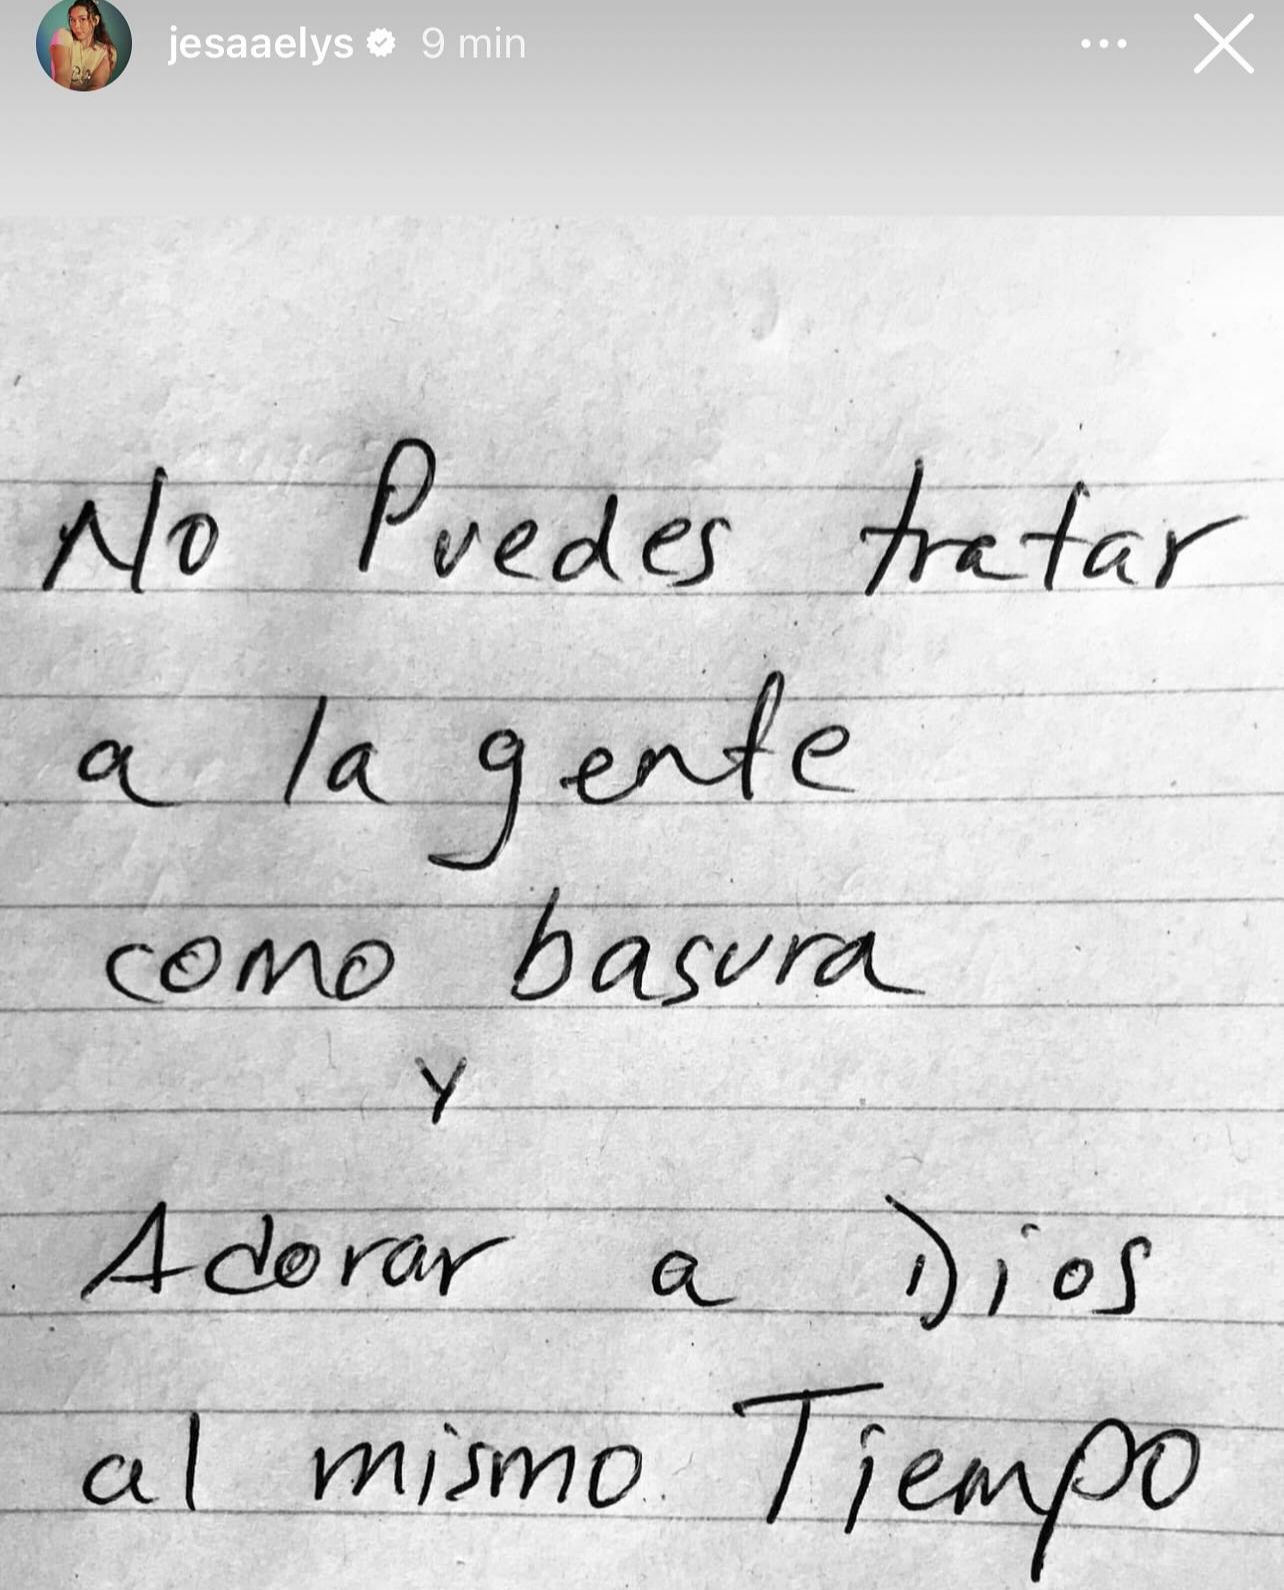 jesaaelys 9 min
No Puedes tratar
a la gente
como basura
Y
Adorar a Dios
al mismo Tiempo